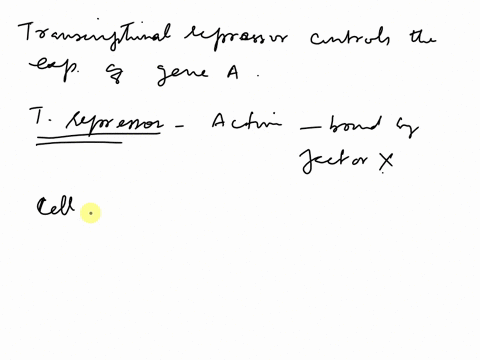 Transcriptional repressor controls the
exp. of gene A.
T. repressor - Active - bound by
factor X
Cell